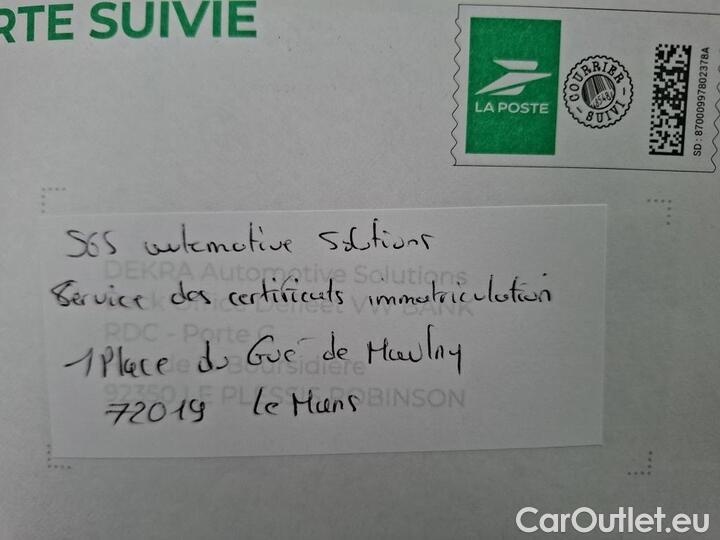 RTE SUIVIE
LA POSTE
COURRIER SUIVI
SD : 87000997802378A
SGS automotive Solutions
DEKRA Automotive Solutions
Service des certificats immatriculation
Office Defleet VW BANK
RDC - Porte C
1 Place du Gué de Maulny
Boursidière
72019 Le Mans
92350 LE PLESSIS ROBINSON
CarOutlet.eu